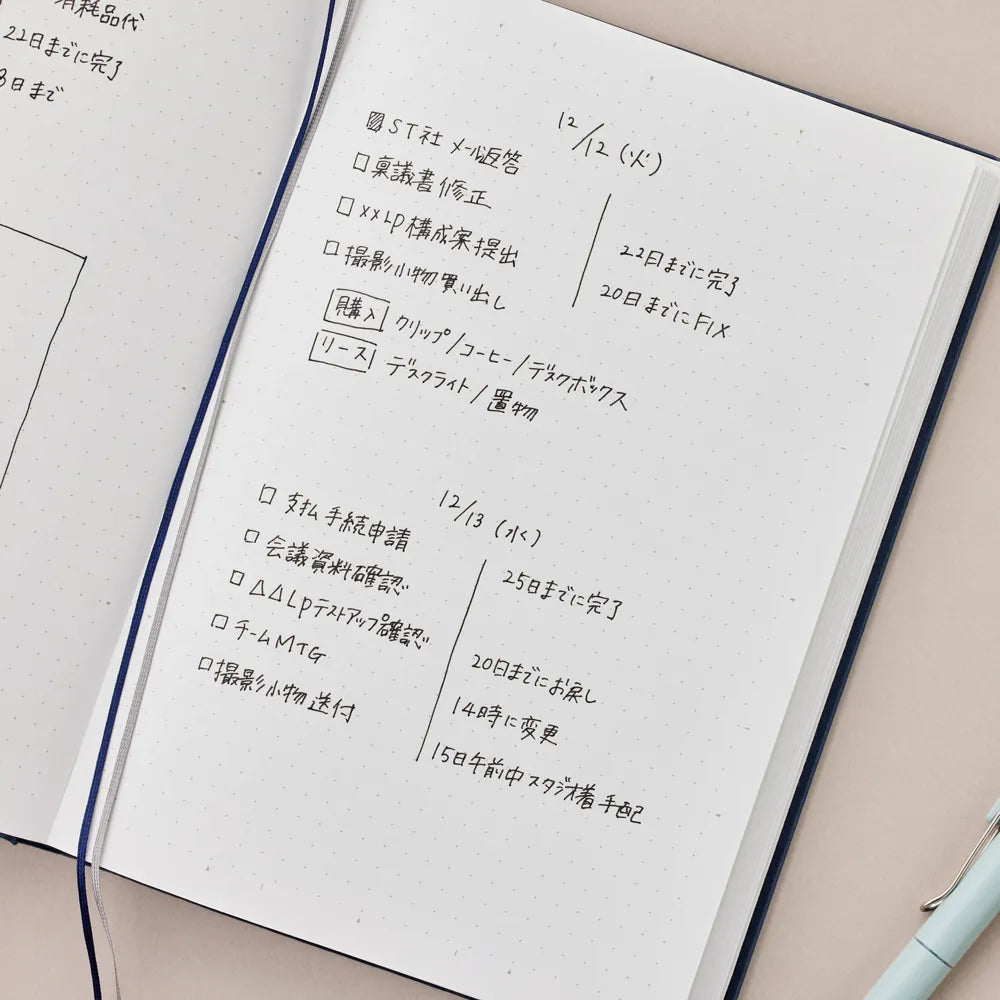 消耗品代
22日までに完了
8日まで
12/12(火)
ST社 メール返答
稟議書修正
xxLp構成案提出 22日までに完了
撮影小物買い出し 20日までにFIX
購入 クリップ/コーヒー/デスクボックス
リース デスクライト/置物
12/13(水)
支払手続申請
会議資料確認 25日までに完了
△△Lpテストアップ確認
チームMTG 20日までにお戻し
撮影小物送付 14時に変更
15日午前中スタジオ着手配